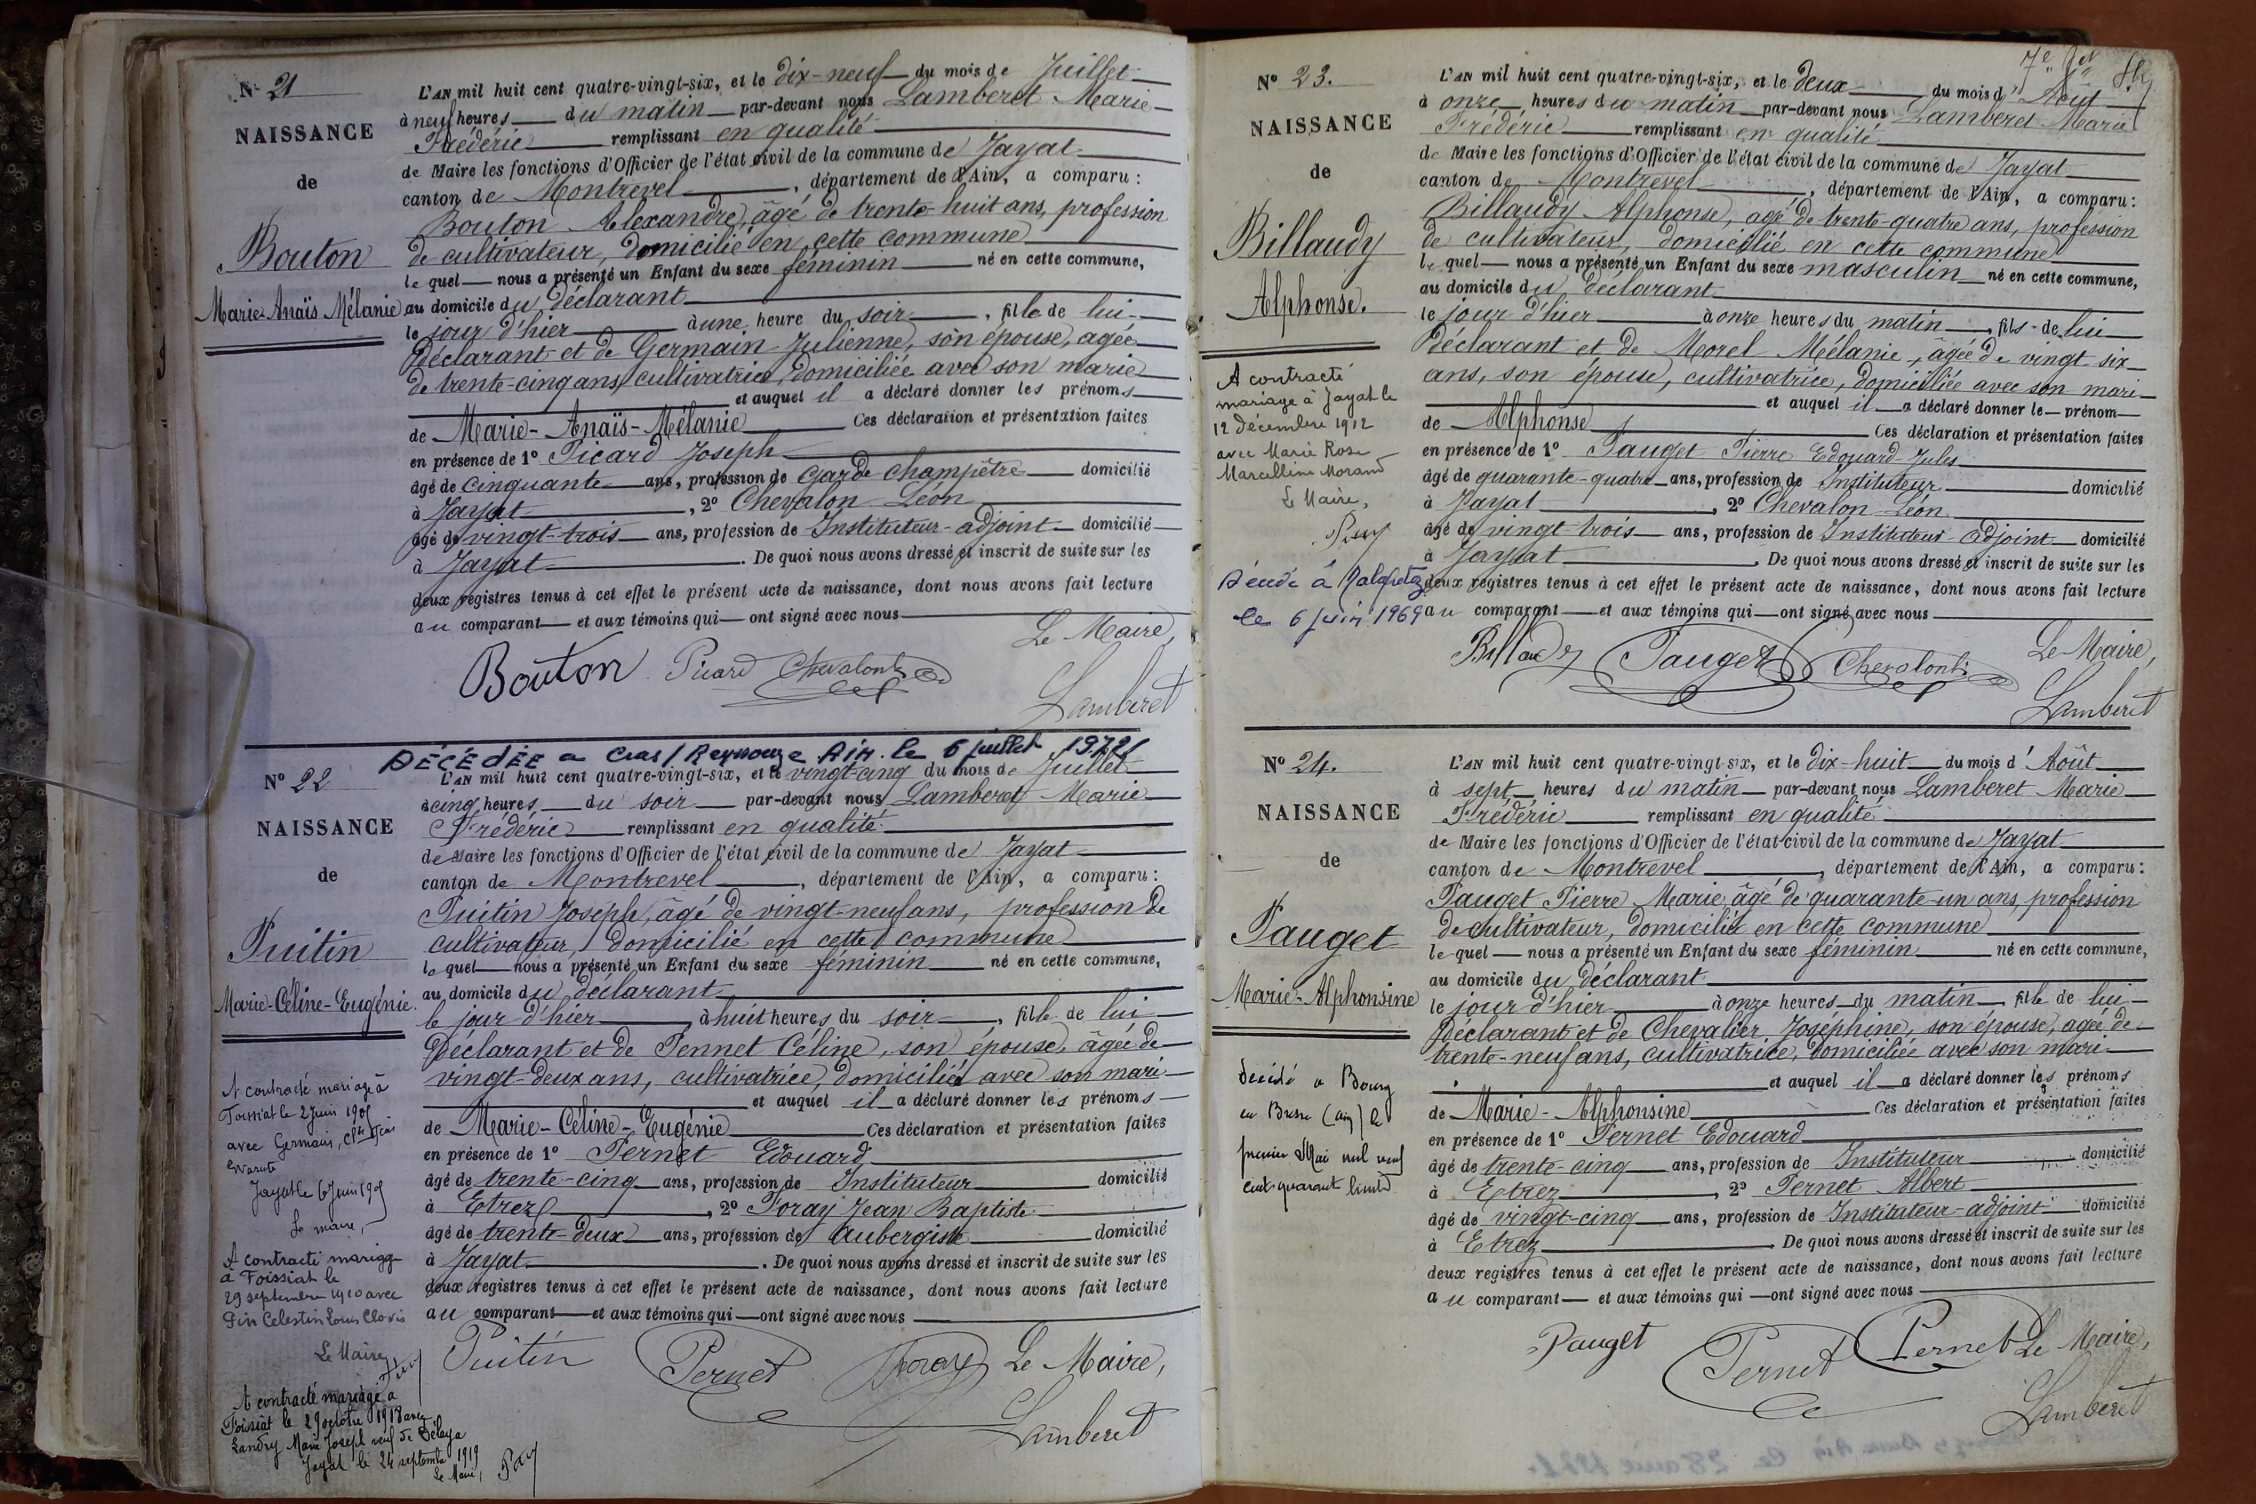 N° 21
NAISSANCE
de
Bouton
Marie-Anaïs Mélanie
L'AN mil huit cent quatre-vingt-six, et le dix-neuf du mois de Juillet
à neuf heures du matin par-devant nous Lamberet Marie
Frédéric remplissant en qualité
de Maire les fonctions d'Officier de l'état civil de la commune de Jayat
canton de Montrevel, département de l'Ain, a comparu :
Bouton Alexandre, âgé de trente-huit ans, profession
de cultivateur, domicilié en cette commune
le quel nous a présenté un Enfant du sexe féminin né en cette commune,
au domicile du déclarant
le jour d'hier à une heure du soir, fille de lui
déclarant et de Germain Julienne, son épouse, agée
de trente-cinq ans, cultivatrice, domiciliée avec son marie
et auquel il a déclaré donner les prénoms
de Marie-Anaïs-Mélanie Ces déclaration et présentation faites
en présence de 1° Picard Joseph
âgé de cinquante ans, profession de Garde champêtre domicilié
à Jayat, 2° Chevalon Léon
âgé de vingt-trois ans, profession de Instituteur-adjoint domicilié
à Jayat. De quoi nous avons dressé et inscrit de suite sur les
deux registres tenus à cet effet le présent acte de naissance, dont nous avons fait lecture
au comparant et aux témoins qui ont signé avec nous
Le Maire,
Bouton Picard Chevalon
Lamberet
DÉCÉDÉE a Cras/Reyssouze Ain. le 6 juillet 1972
N° 22
NAISSANCE
de
Puitin
Marie-Céline-Eugénie.
A contracté mariage à
Foissiat le 2 Juin 1905
avec Germain,
Jayat le 6 Juin 1905
Le maire,
A contracté mariage
à Foissiat le
29 septembre 1910 avec
Pin Celestin Louis Clovis
Le Maire,
A contracté mariage à
Foissiat le 29 octobre 1918 avec
Landry Marie Joseph veuf de Delaya
Jayat le 24 septembre 1919
Le Maire,
L'AN mil huit cent quatre-vingt-six, et le vingt-cinq du mois de Juillet
à cinq heures du soir par-devant nous Lamberet Marie
Frédéric remplissant en qualité
de Maire les fonctions d'Officier de l'état civil de la commune de Jayat
canton de Montrevel, département de l'Ain, a comparu :
Puitin Joseph, âgé de vingt-neuf ans, profession de
cultivateur, domicilié en cette commune
le quel nous a présenté un Enfant du sexe féminin né en cette commune,
au domicile du déclarant
le jour d'hier, à huit heures du soir, fille de lui
déclarant et de Pennet Céline, son épouse, âgée de
vingt-deux ans, cultivatrice, domiciliée avec son mari
et auquel il a déclaré donner les prénoms
de Marie-Céline-Eugénie Ces déclaration et présentation faites
en présence de 1° Pernet Edouard
âgé de trente-cinq ans, profession de Instituteur domicilié
à Etrez, 2° Foray Jean Baptiste
âgé de trente-deux ans, profession de Aubergiste domicilié
à Jayat. De quoi nous avons dressé et inscrit de suite sur les
deux registres tenus à cet effet le présent acte de naissance, dont nous avons fait lecture
au comparant et aux témoins qui ont signé avec nous
Puitin Pernet Foray Le Maire,
Lamberet
N° 23.
NAISSANCE
de
Billaudy
Alphonse.
A contracté
mariage à Jayat le
12 décembre 1912
avec Marie Rose
Marcelline Morand
Le Maire,
Décédé à
le 6 juin 1969
L'AN mil huit cent quatre-vingt-six, et le deux du mois d'Août
à onze heures du matin par-devant nous Lamberet Marie
Frédéric remplissant en qualité
de Maire les fonctions d'Officier de l'état civil de la commune de Jayat
canton de Montrevel, département de l'Ain, a comparu :
Billaudy Alphonse, agé de trente-quatre ans, profession
de cultivateur, domicilié en cette commune
le quel nous a présenté un Enfant du sexe masculin né en cette commune,
au domicile du déclarant
le jour d'hier à onze heures du matin, fils de lui
déclarant et de Morel Mélanie, âgée de vingt-six
ans, son épouse, cultivatrice, domiciliée avec son mari
et auquel il a déclaré donner le prénom
de Alphonse Ces déclaration et présentation faites
en présence de 1° Pauget Pierre Edouard Jules
âgé de quarante-quatre ans, profession de Instituteur domicilié
à Jayat, 2° Chevalon Léon
agé de vingt trois ans, profession de Instituteur-adjoint domicilié
à Jayat. De quoi nous avons dressé et inscrit de suite sur les
deux registres tenus à cet effet le présent acte de naissance, dont nous avons fait lecture
au comparant et aux témoins qui ont signé avec nous
Billaudy Pauget Chevalon Le Maire,
Lamberet
N° 24.
NAISSANCE
de
Pauget
Marie-Alphonsine
Décédé a Bourg
en Bresse (Ain) le
premier Mai mil neuf
cent quarante
L'AN mil huit cent quatre-vingt-six, et le dix-huit du mois d'Août
à sept heures du matin par-devant nous Lamberet Marie
Frédéric remplissant en qualité
de Maire les fonctions d'Officier de l'état civil de la commune de Jayat
canton de Montrevel, département de l'Ain, a comparu :
Pauget Pierre Marie, âgé de quarante-un ans, profession
de cultivateur, domicilié en cette commune
le quel nous a présenté un Enfant du sexe féminin né en cette commune,
au domicile du déclarant
le jour d'hier à onze heures du matin, fille de lui
déclarant et de Chevalier Joséphine, son épouse, agée de
trente-neuf ans, cultivatrice, domiciliée avec son mari
et auquel il a déclaré donner les prénoms
de Marie-Alphonsine Ces déclaration et présentation faites
en présence de 1° Pernet Edouard
âgé de trente-cinq ans, profession de Instituteur domicilié
à Etrez, 2° Pernet Albert
âgé de vingt-cinq ans, profession de Instituteur-adjoint domicilié
à Etrez. De quoi nous avons dressé et inscrit de suite sur les
deux registres tenus à cet effet le présent acte de naissance, dont nous avons fait lecture
au comparant et aux témoins qui ont signé avec nous
Pauget Pernet Pernet Le Maire,
Lamberet